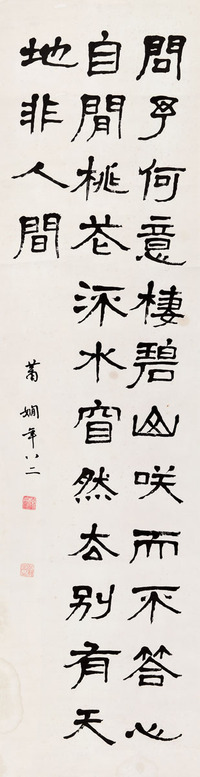 問予何意棲碧山咲而不答心
自閒桃花流水窅然去別有天
地非人間
蕭嫻年八二